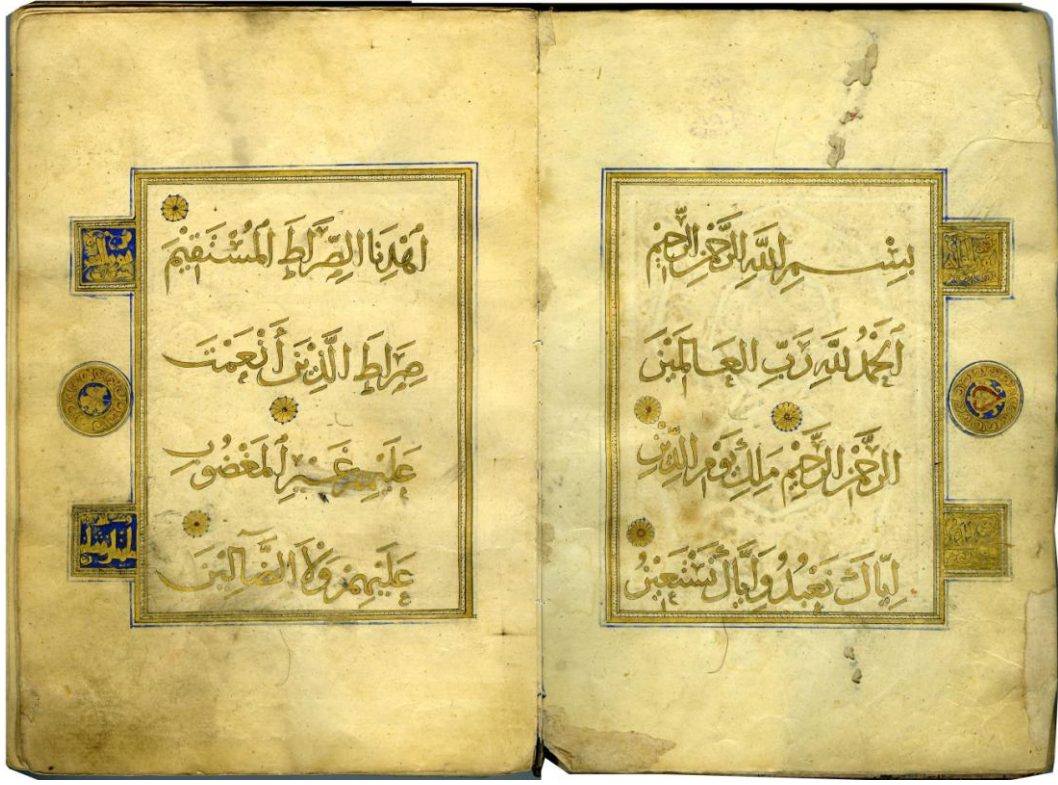 بِسْمِ اللَّهِ الرَّحْمَٰنِ الرَّحِيمِ
اَلْحَمْدُ لِلَّهِ رَبِّ الْعَالَمِينَ
الرَّحْمَٰنِ الرَّحِيمِ مَلِكِ يَوْمِ الدِّينِ
إِيَّاكَ نَعْبُدُ وَإِيَّاكَ نَسْتَعِينُ
اِهْدِنَا الصِّرَاطَ الْمُسْتَقِيمَ
صِرَاطَ الَّذِينَ أَنْعَمْتَ
عَلَيْهِمْ غَيْرِ الْمَغْضُوبِ
عَلَيْهِمْ وَلَا الضَّالِّينَ